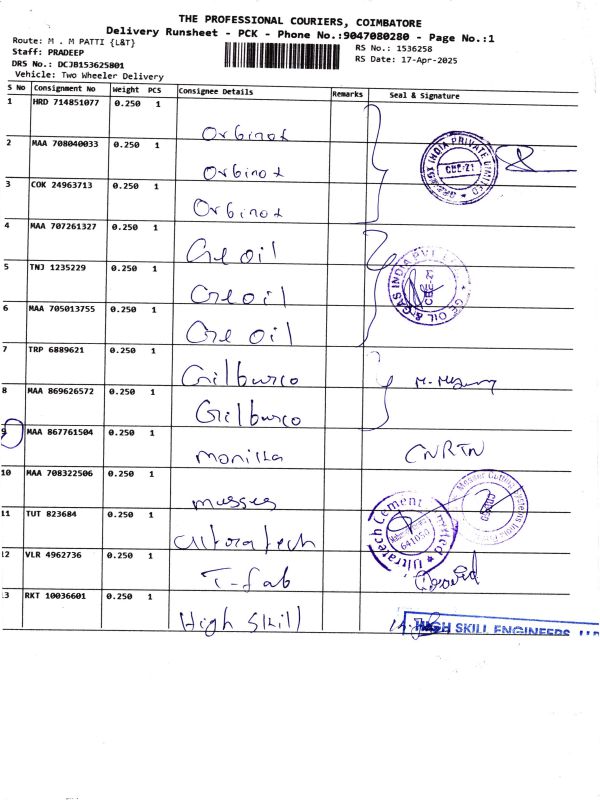 THE PROFESSIONAL COURIERS, COIMBATORE
Delivery Runsheet - PCK - Phone No.:9047080280 - Page No.:1
Route: M . M PATTI {L&T}
RS No.: 1536258
Staff: PRADEEP
RS Date: 17-Apr-2025
DRS No.: DCJB153625801
Vehicle: Two Wheeler Delivery
S No Consignment No Weight PCS Consignee Details Remarks Seal & Signature
1 HRD 714851077 0.250 1 Orbinox
2 MAA 708040033 0.250 1 Orbinox
3 COK 24963713 0.250 1 Orbinox
INDIA PRIVATE LIMITED
CBE-21
4 MAA 707261327 0.250 1 Ge oil
5 TNJ 1235229 0.250 1 Ge oil
6 MAA 705013755 0.250 1 Ge oil
GE OIL & GAS INDIA PVT LTD
CBE-21
7 TRP 6889621 0.250 1 Gilburco
8 MAA 869626572 0.250 1 Gilburco
9 MAA 867761504 0.250 1 Monikka CNRTN
10 MAA 708322506 0.250 1 messes
Messer Cutting Systems India
11 TUT 823684 0.250 1 Ultratech
Ultratech Cement Limited
641050
12 VLR 4962736 0.250 1 T-fab
13 RKT 10036601 0.250 1 High Skill
HIGH SKILL ENGINEERS LLP